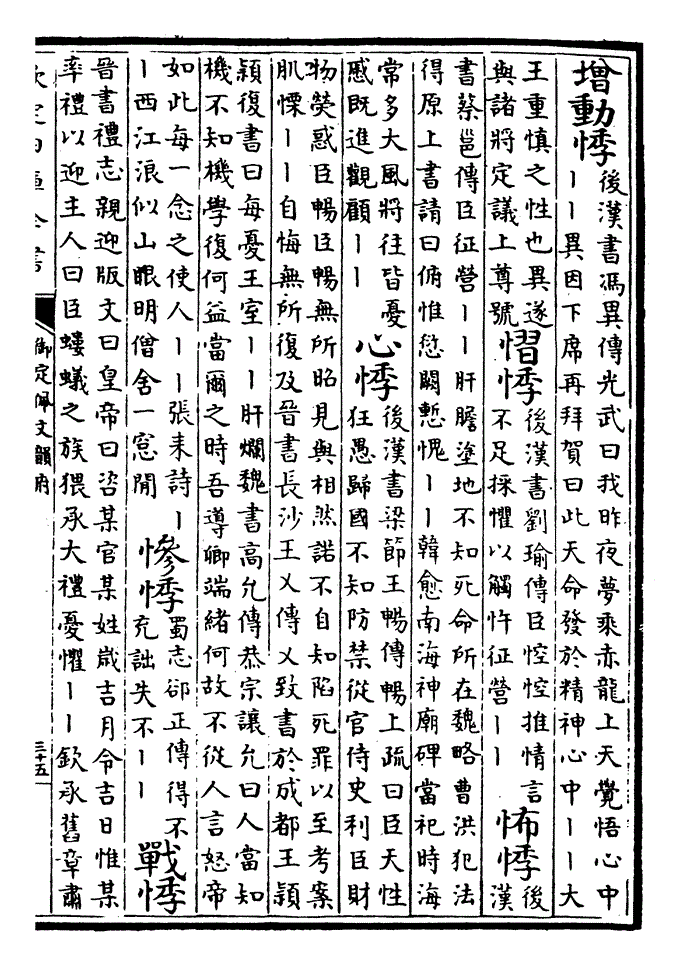 增動悸
後漢書馮異傳光武曰我昨夜夢乘赤龍上天覺悟心中
丨丨異因下席再拜賀曰此天命發於精神心中丨丨大
王重慎之性也異遂
與諸將定議上尊號
慴悸
後漢書劉瑜傳臣悾悾推情言
不足採懼以觸忤征營丨丨
怖悸
後
漢
書蔡邕傳臣征營丨丨肝膽塗地不知死命所在魏略曹洪犯法
得原上書請曰俯惟愆闕慙愧丨丨韓愈南海神廟碑當祀時海
常多大風將往皆憂
慼既進觀顧丨丨
心悸
後漢書梁節王暢傳暢上疏曰臣天性
狂愚歸國不知防禁從官侍史利臣財
物熒惑臣暢臣暢無所昭見與相然諾不自知陷死罪以至考案
肌慄丨丨自悔無所復及晉書長沙王乂傳乂致書於成都王穎
穎復書曰每憂王室丨丨肝爛魏書高允傳恭宗讓允曰人當知
機不知機學復何益當爾之時吾導卿端緒何故不從人言怒帝
如此每一念之使人丨丨張耒詩丨
丨西江浪似山眼明僧舍一窓閒
慘悸
蜀志郤正傳得不
充詘失不丨丨
戰悸
晉書禮志親迎版文曰皇帝曰咨某官某姓歲吉月令吉日惟某
率禮以迎主人曰臣螻蟻之族猥承大禮憂懼丨丨欽承舊章肅
欽定四庫全書
御定佩文韻府
三十五